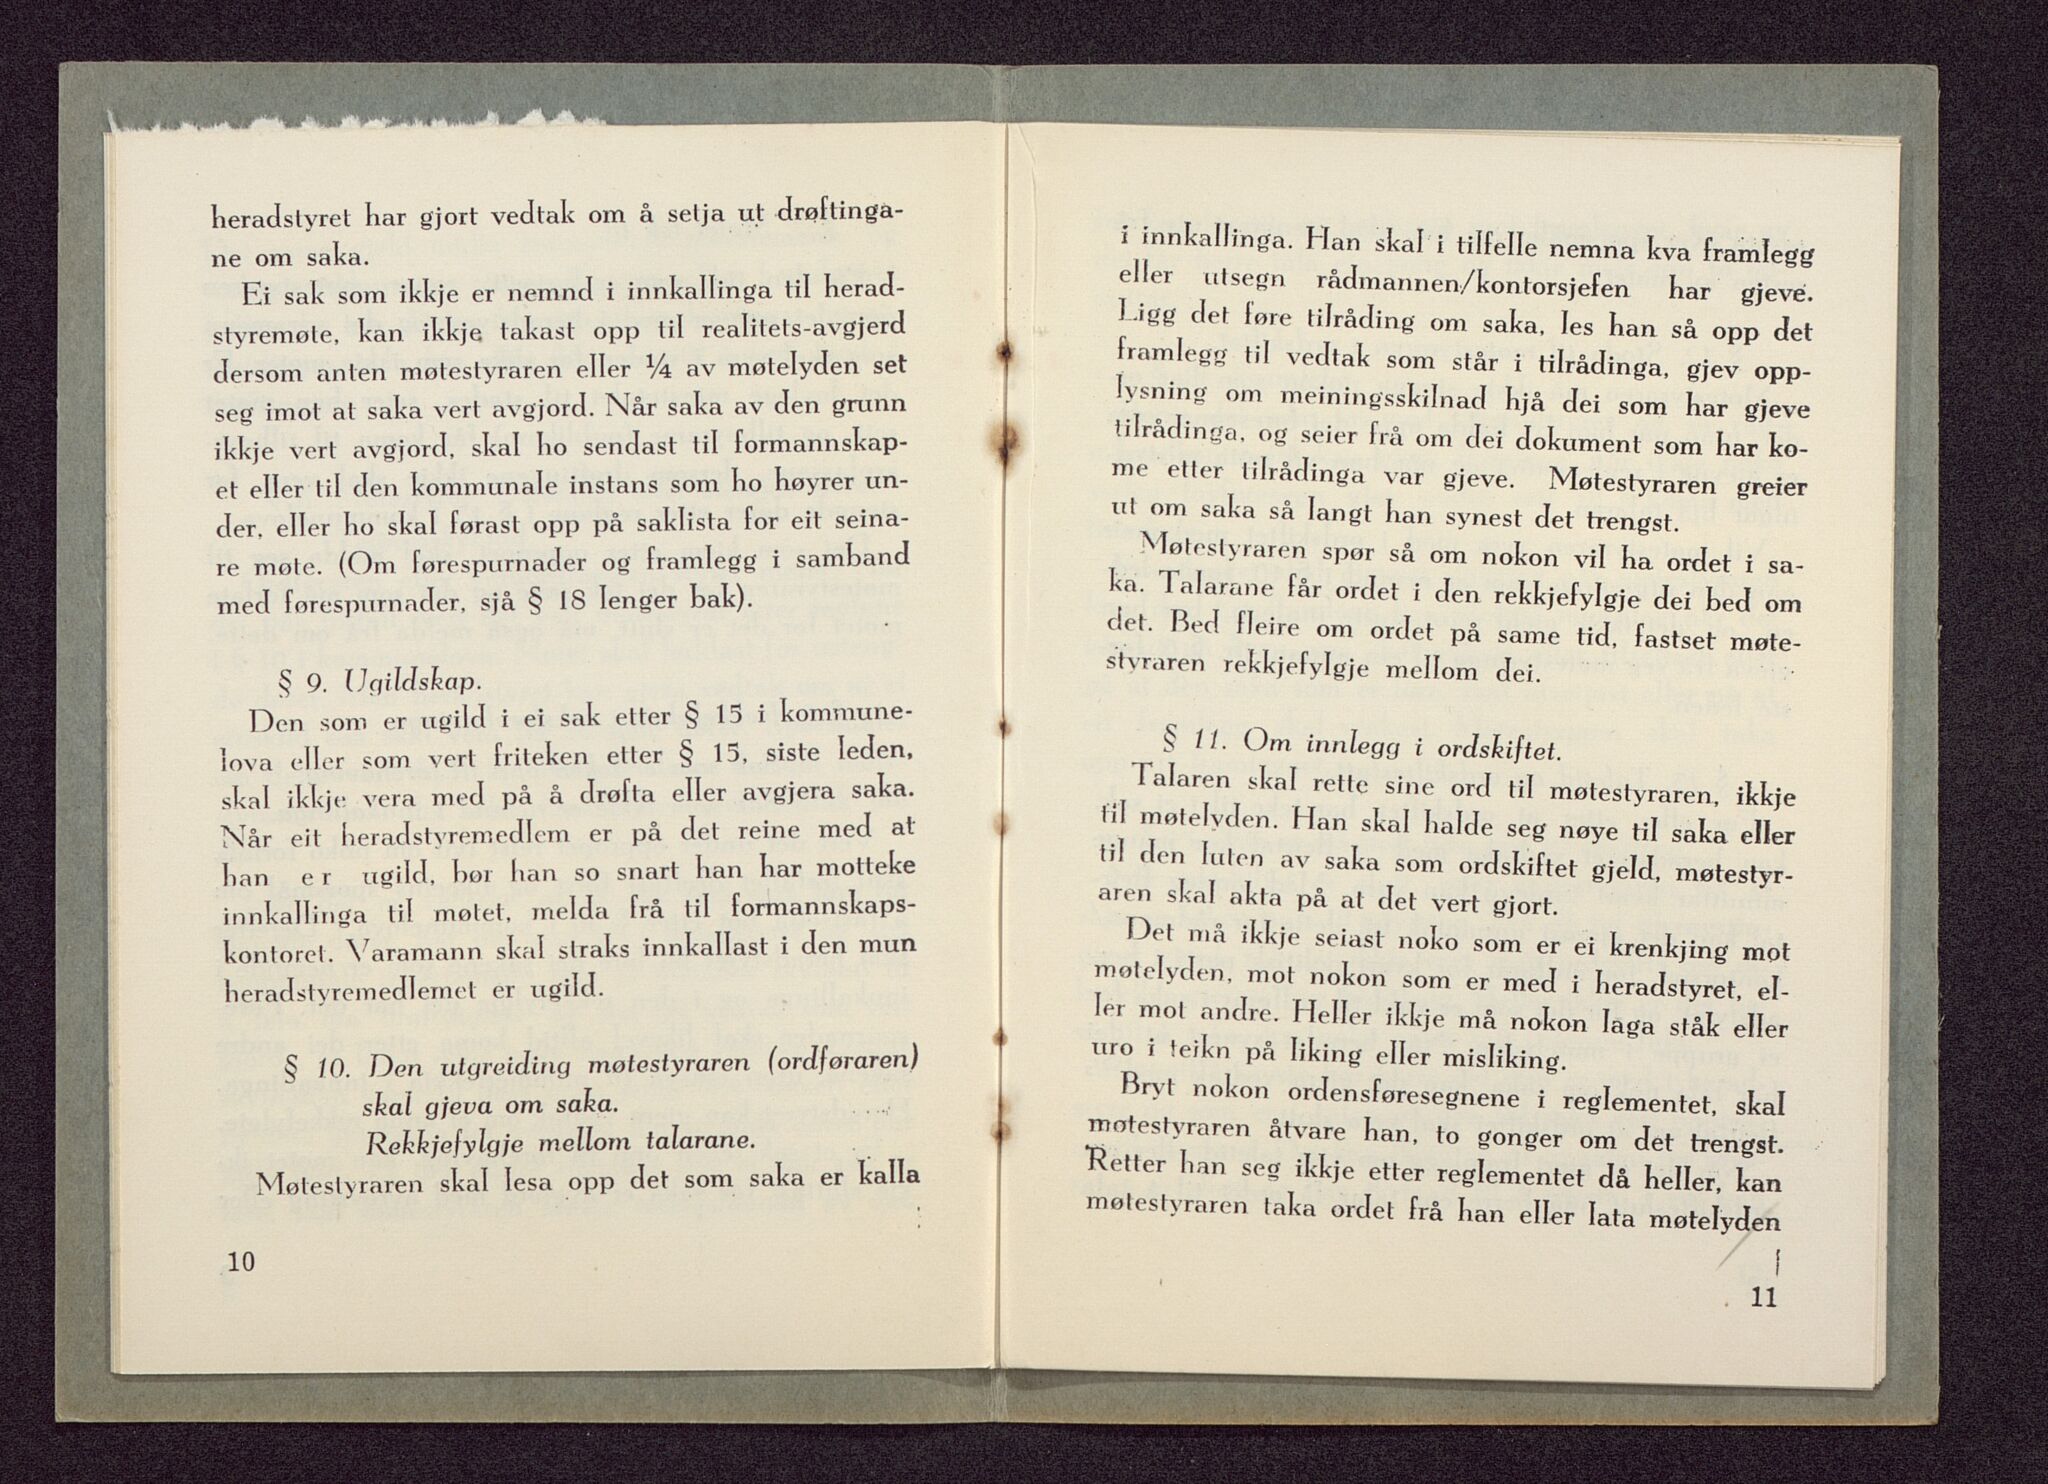 heradstyret har gjort vedtak om å setja ut drøftinga-
ne om saka.
Ei sak som ikkje er nemnd i innkallinga til herad-
styremøte, kan ikkje takast opp til realitets-avgjerd
dersom anten møtestyraren eller ¼ av møtelyden set
seg imot at saka vert avgjord. Når saka av den grunn
ikkje vert avgjord, skal ho sendast til formannskap-
et eller til den kommunale instans som ho høyrer un-
der, eller ho skal førast opp på saklista for eit seina-
re møte. (Om førespurnader og framlegg i samband
med førespurnader, sjå § 18 lenger bak).
§ 9. Ugildskap.
Den som er ugild i ei sak etter § 15 i kommune-
lova eller som vert friteken etter § 15, siste leden,
skal ikkje vera med på å drøfta eller avgjera saka.
Når eit heradstyremedlem er på det reine med at
han er ugild, bør han so snart han har motteke
innkallinga til møtet, melda frå til formannskaps-
kontoret. Varamann skal straks innkallast i den mun
heradstyremedlemet er ugild.
§ 10. Den utgreiding møtestyraren (ordføraren)
skal gjeva om saka.
Rekkjefylgje mellom talarane.
Møtestyraren skal lesa opp det som saka er kalla
10
i innkallinga. Han skal i tilfelle nemna kva framlegg
eller utsegn rådmannen/kontorsjefen har gjeve.
Ligg det føre tilråding om saka, les han så opp det
framlegg til vedtak som står i tilrådinga, gjev opp-
lysning om meiningsskilnad hjå dei som har gjeve
tilrådinga, og seier frå om dei dokument som har ko-
me etter tilrådinga var gjeve. Møtestyraren greier
ut om saka så langt han synest det trengst.
Møtestyraren spør så om nokon vil ha ordet i sa-
ka. Talarane får ordet i den rekkjefylgje dei bed om
det. Bed fleire om ordet på same tid, fastset møte-
styraren rekkjefylgje mellom dei.
§ 11. Om innlegg i ordskiftet.
Talaren skal rette sine ord til møtestyraren, ikkje
til møtelyden. Han skal halde seg nøye til saka eller
til den luten av saka som ordskiftet gjeld, møtestyr-
aren skal akta på at det vert gjort.
Det må ikkje seiast noko som er ei krenkjing mot
møtelyden, mot nokon som er med i heradstyret, el-
ler mot andre. Heller ikkje må nokon laga ståk eller
uro i teikn på liking eller misliking.
Bryt nokon ordensføresegnene i reglementet, skal
møtestyraren åtvare han, to gonger om det trengst.
Retter han seg ikkje etter reglementet då heller, kan
møtestyraren taka ordet frå han eller lata møtelyden
11